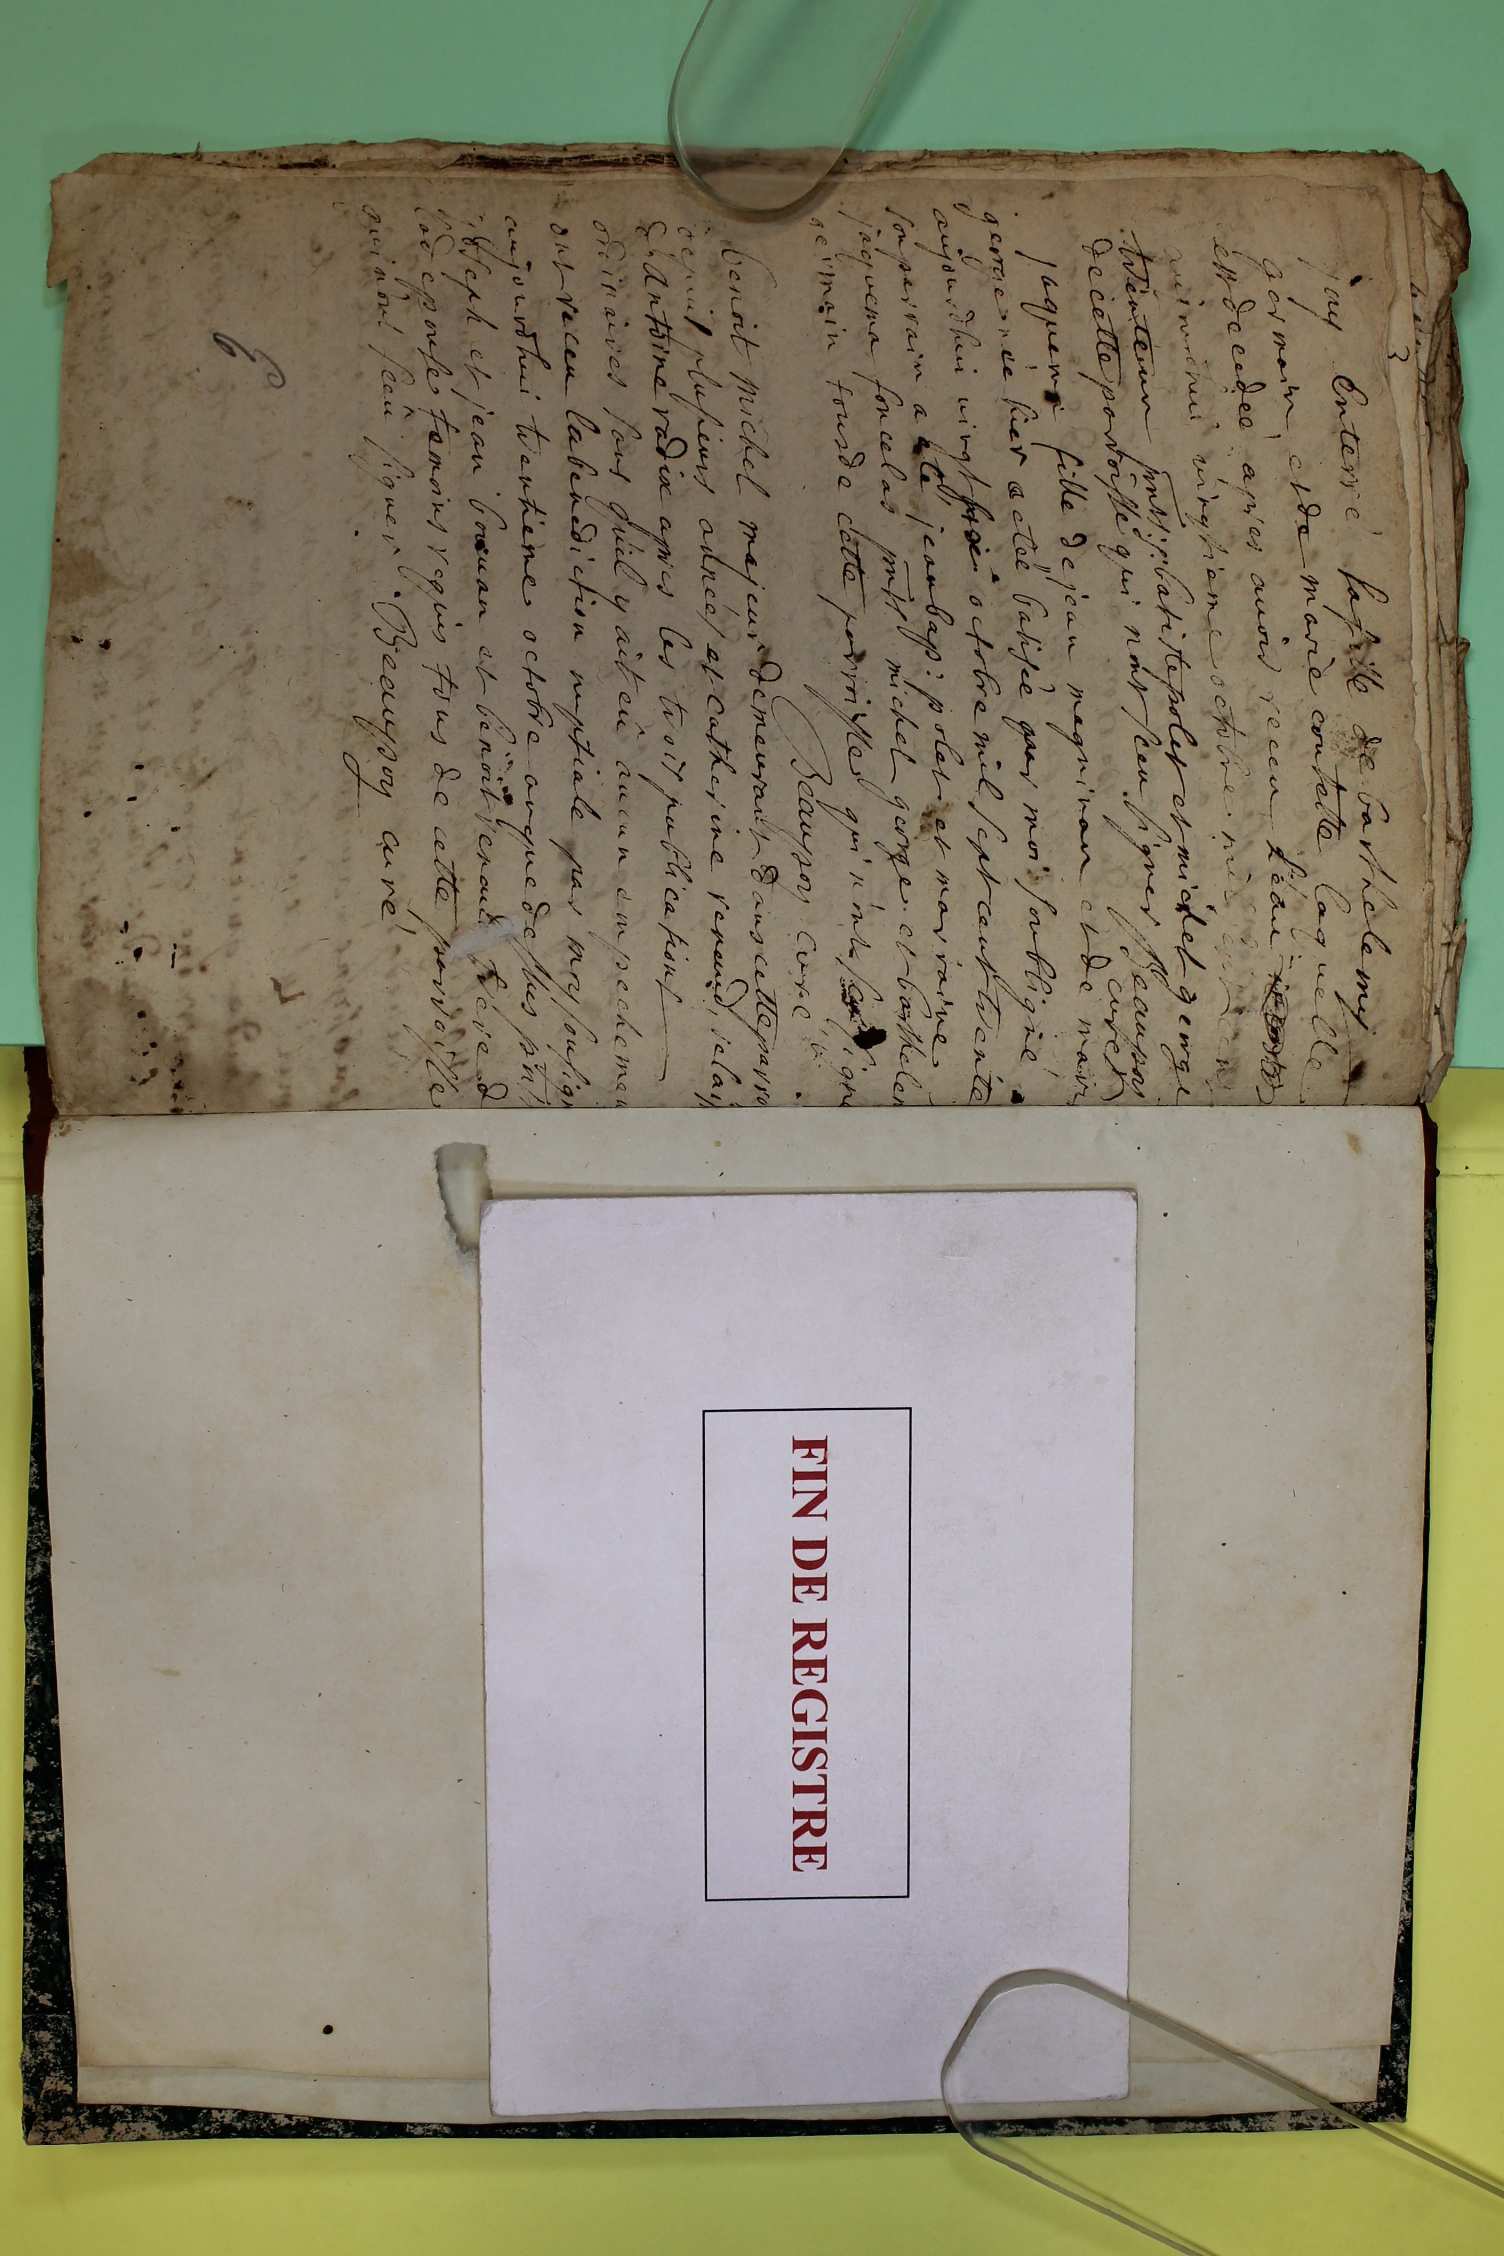 jay Enterré la fille de barthelemy
germain et de marie contette laquelle
est decedée apres avoir receu l'eau
vingtieme octobre mil sept cent
trente un pnts jbatiste polet et michel george
de cette parroisse qui nont sceu signer Beaupoy
curé
jaquema fille de jean megniran et de marie
george née hier a été batisée par moi soubsigné
aujourdhui vingt six octobre mil sept cent trente
son parrain a eté jean bap: polet et marraine
jaquema foncelas pnts michel george et barthelemy
germain tous de cette parroisse qui n'ont sceu signer
Beaupoy curé
benoit michel majeur demeurant dans cette parroi
depuis plusieurs années et catherine renaud, relaiss
d'Antoine radix apres les trois publications
ordinaires sans quil y ait eû aucun empechement
ont receu la benediction nuptiale par moy soussign
aujourdhui trentieme octobre an que dessus pnts
joseph et jean bouuan et benoit renaud frere d
lad epouse temoins requis tous de cette parroisse
qui n'ont sceu signer. Beaupoy curé
FIN DE REGISTRE